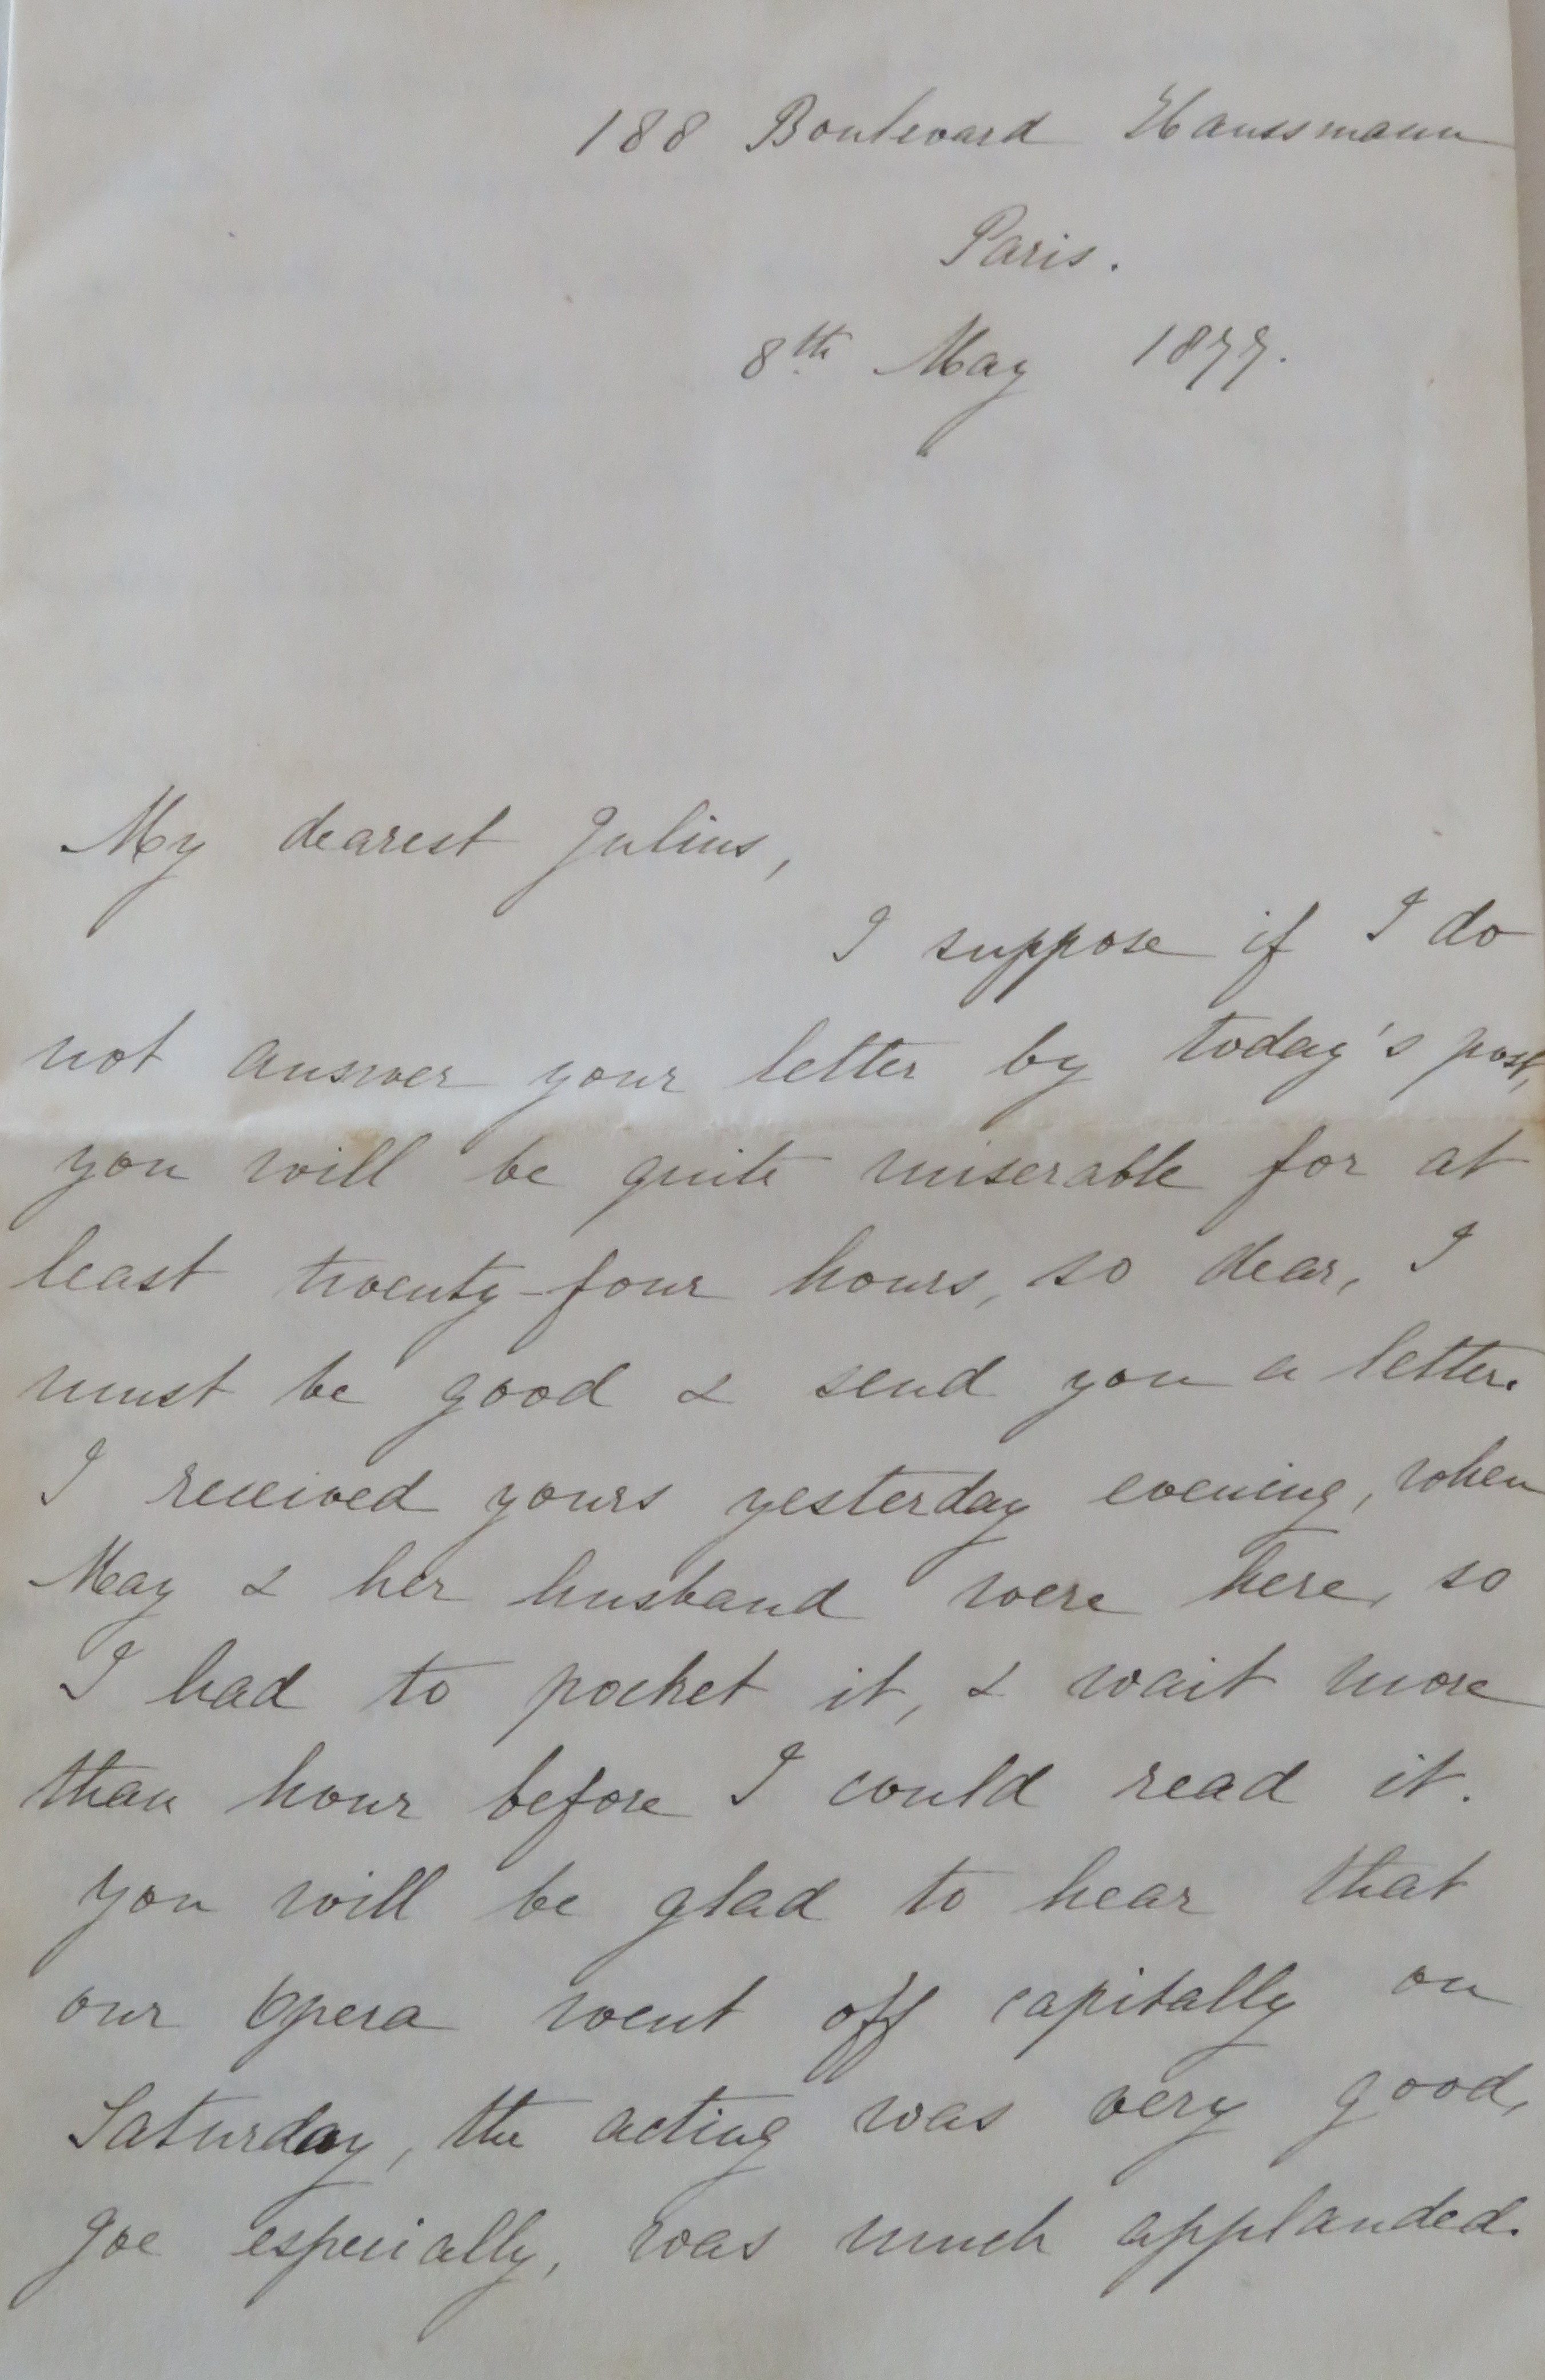 188 Boulevard Haussmann
Paris.
8th May 1877.
My dearest Julius,
I suppose if I do
not answer your letter by today's post,
you will be quite miserable for at
least twenty-four hours, so dear, I
must be good & send you a letter.
I received yours yesterday evening, when
May & her husband were here, so
I had to pocket it, & wait more
than hour before I could read it.
You will be glad to hear that
our Opera went off capitally on
Saturday, the acting was very good,
Joe especially, was much applauded.